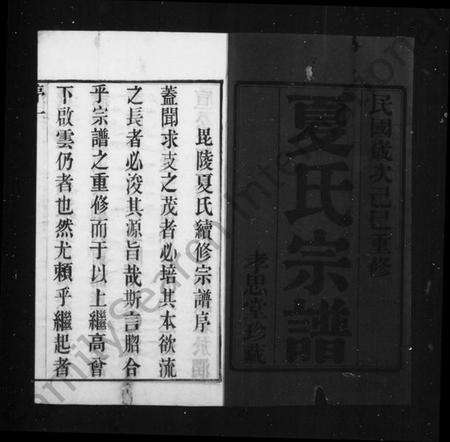 民國歲次己巳重修
夏氏宗譜
孝思堂珍藏
毘陵夏氏續修宗譜序
蓋聞求支之茂者必培其本欲流
之長者必浚其源旨哉斯言脗合
乎宗譜之重修而于以上繼高曾
下啟雲仍者也然尤賴乎繼起者
序一
FamilySearch International